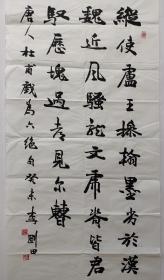 縱使盧王操翰墨劣於漢
魏近風騷龍文虎脊皆君
馭歷塊過都見尔曹
唐人杜甫戲為六絕句癸未春劉田